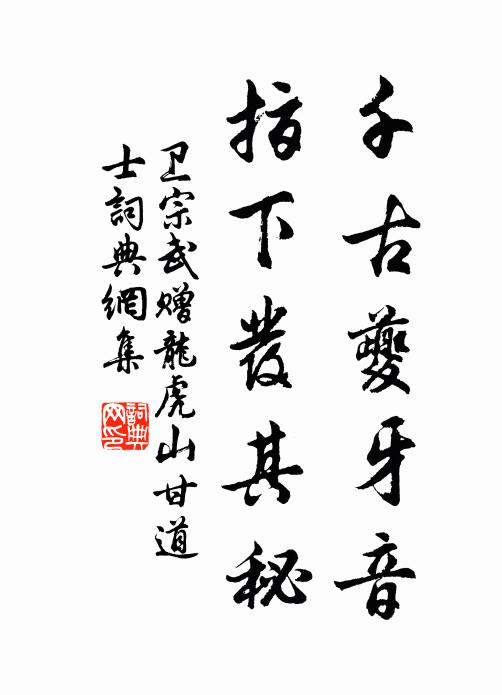 千古夔牙音
指下發其秘
卫宗武赠龍虎山甘道
士詞典網集
詞典
网印